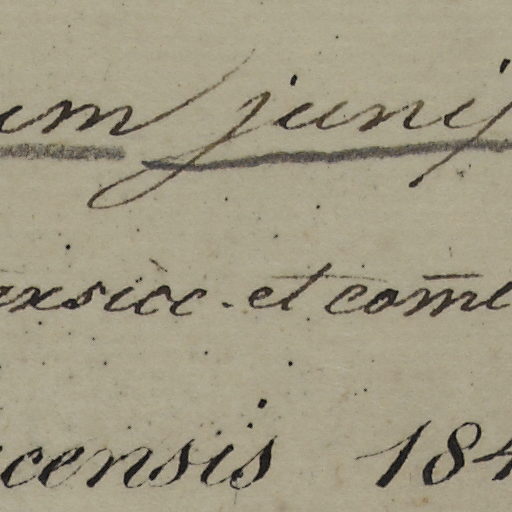 um junij
exsicc. et com̄e
censis 184